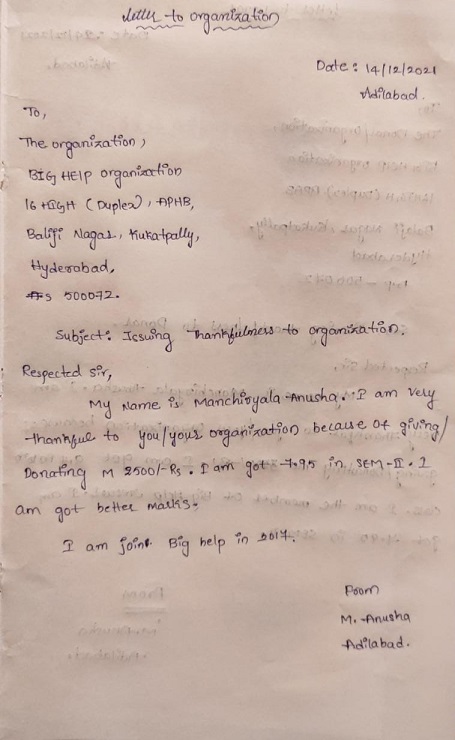 Letter to organization
Date: 14/12/2021
Adilabad.
To,
The organization,
BIG HELP organization
16 HIGH (Duplex), APHB,
Balaji Nagar, Kukatpally,
Hyderabad,
500072.
Subject: Issuing Thankfulness to organization.
Respected sir,
My Name is Manchiryala Anusha. I am very
thankful to you/your organization because of giving/
Donating M 2500/- Rs. I am got 7.95 in SEM-II. I
am got better marks.
I am join Big help in 2017.
From
M. Anusha
Adilabad.